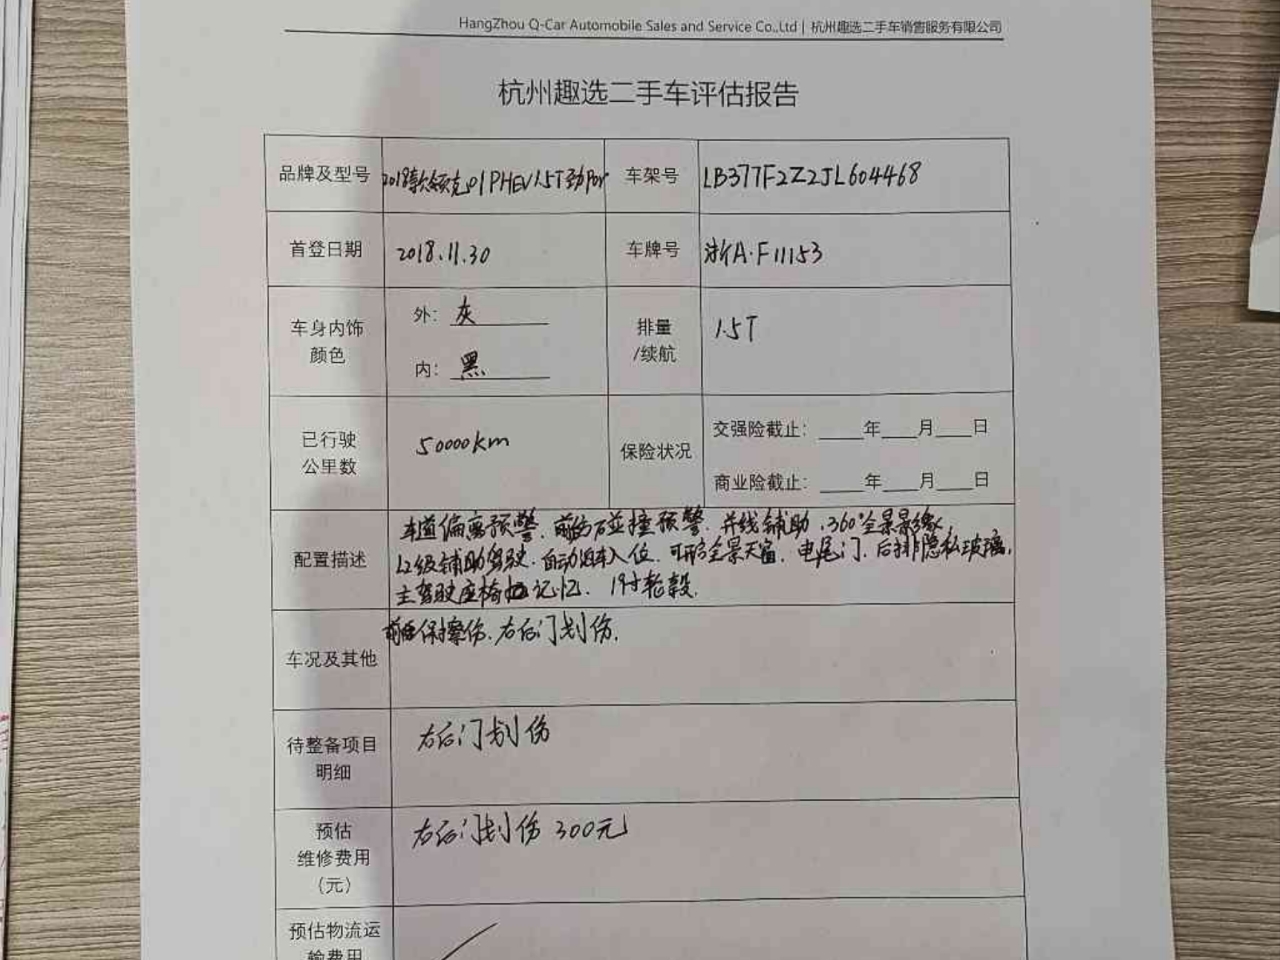 HangZhou Q-Car Automobile Sales and Service Co.,Ltd | 杭州趣选二手车销售服务有限公司
杭州趣选二手车评估报告
品牌及型号 2018款领克01PHEV1.5T劲Por
车架号 LB377F2Z2JL604468
首登日期 2018.11.30
车牌号 浙A·F11153
车身内饰
颜色
外: 灰
内: 黑
排量
/续航
1.5T
已行驶
公里数
50000km
保险状况
交强险截止: ____年___月___日
商业险截止: ____年___月___日
配置描述
车道偏离预警、前方碰撞预警、并线辅助、360°全景影像、
L2级辅助驾驶、自动泊车入位、可开启全景天窗、电尾门、后排隐私玻璃、
主驾驶座椅记忆、19寸轮毂
车况及其他
前保擦伤、右后门划伤.
待整备项目
明细
右后门划伤
预估
维修费用
(元)
右后门划伤 300元
预估物流运
输费用